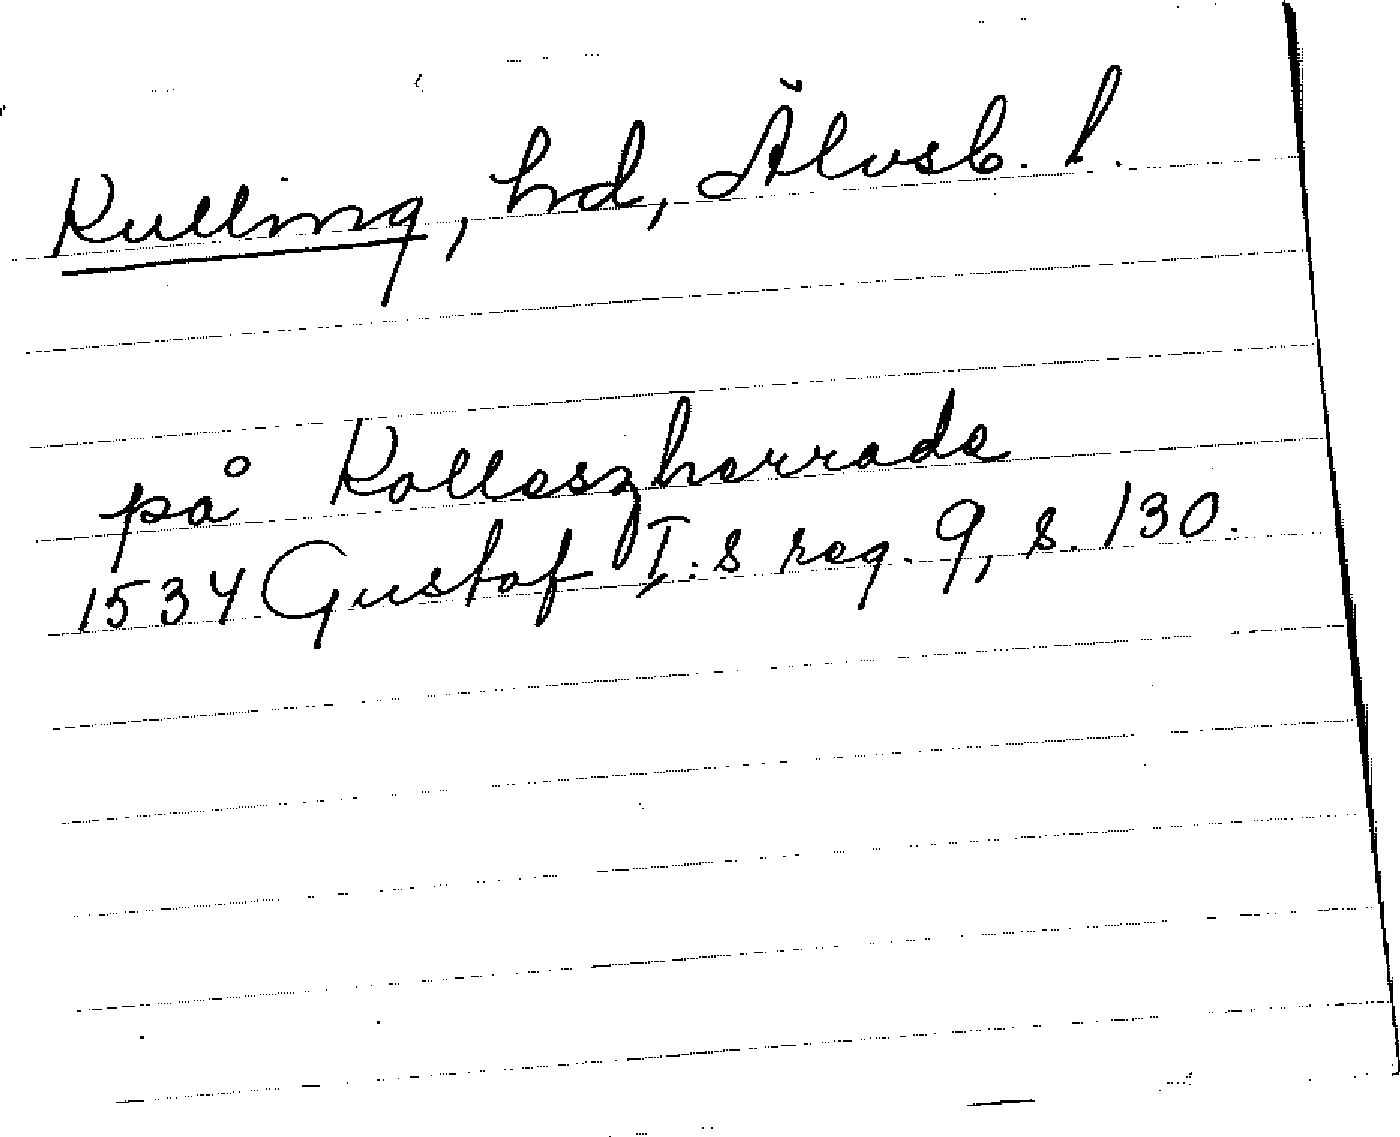 Kulling, hd, Älvsb. l.
på Kolleszherrade
1534 Gustaf I:s reg. 9, s. 130.